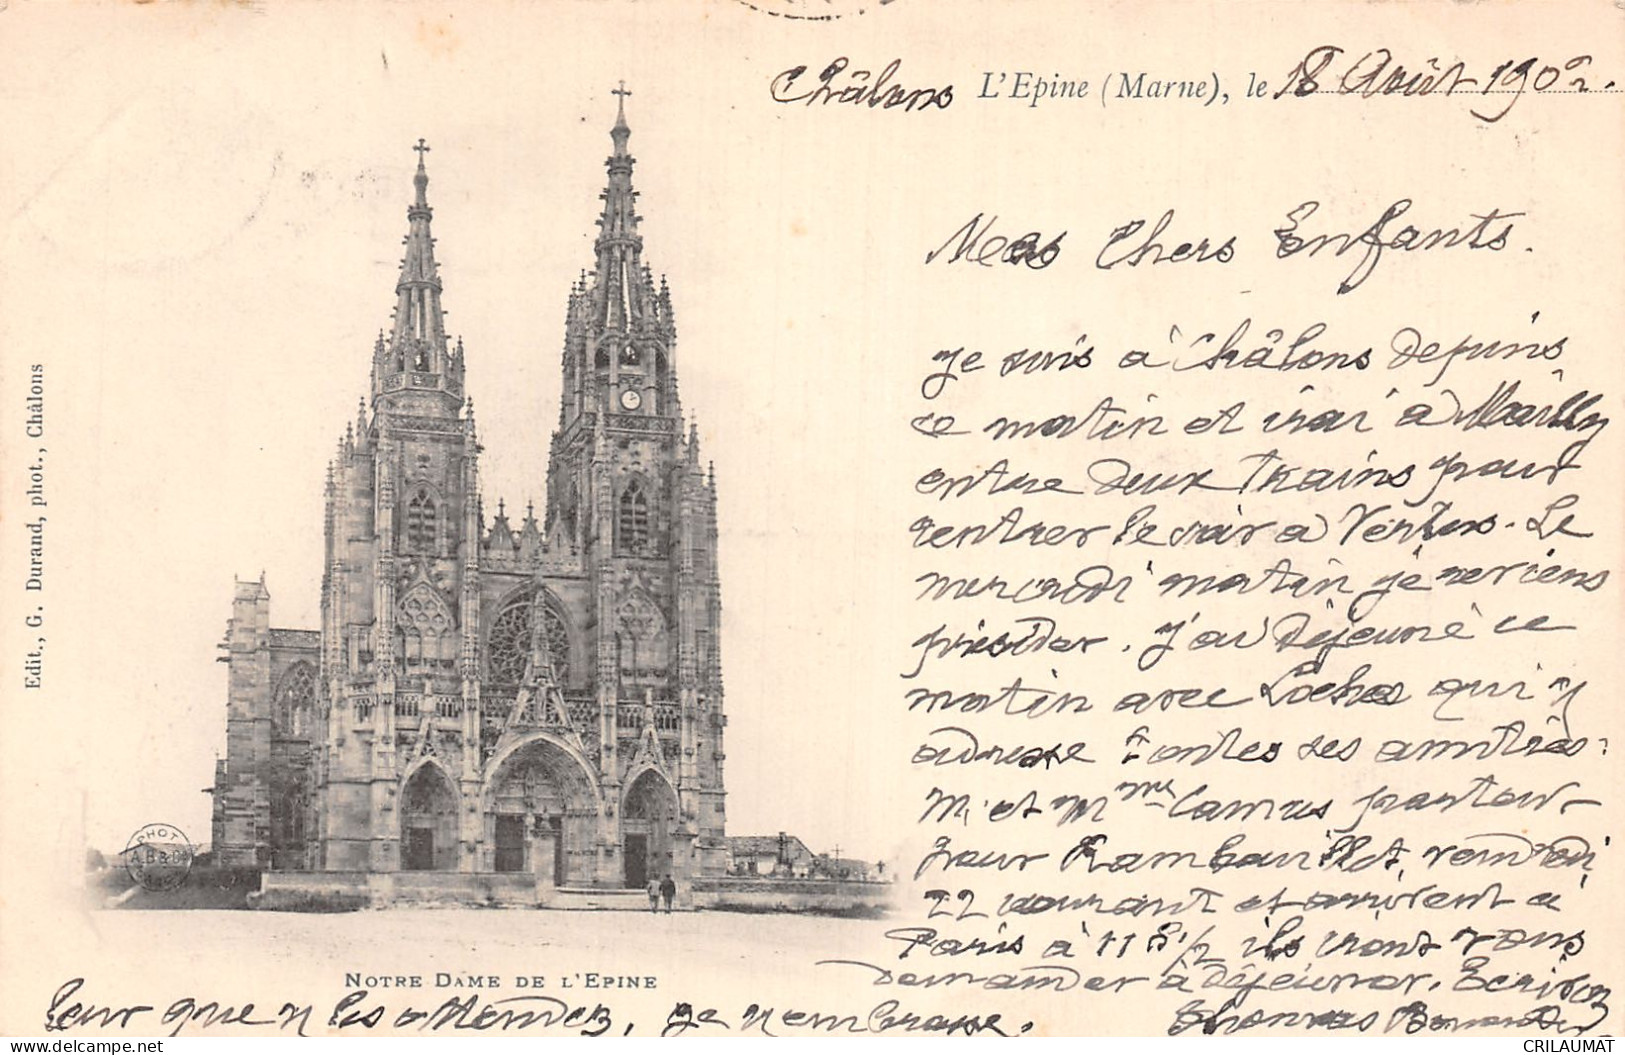 Châlons L'Epine (Marne), le 18 Août 1902.
Mes Chers Enfants.
Je suis à Châlons depuis
ce matin et irai à Mailly
entre deux trains pour
rentrer le soir à Vertus. Le
mercredi matin je reviens
présider. J'ai déjeuné ce
matin avec Loches qui v
adresse toutes ses amitiés.
M. et Mme Camus partour
pour Rambouillet, vendredi
22 courant et arrivent à
Paris à 11 h 1/2 ils iront vous
demander à déjeuner. Ecrivez
leur que v les attendez, je v embrasse.
Edit., G. Durand, phot., Châlons
PHOT
A.B & Co
NOTRE DAME DE L'EPINE
CRILAUMAT